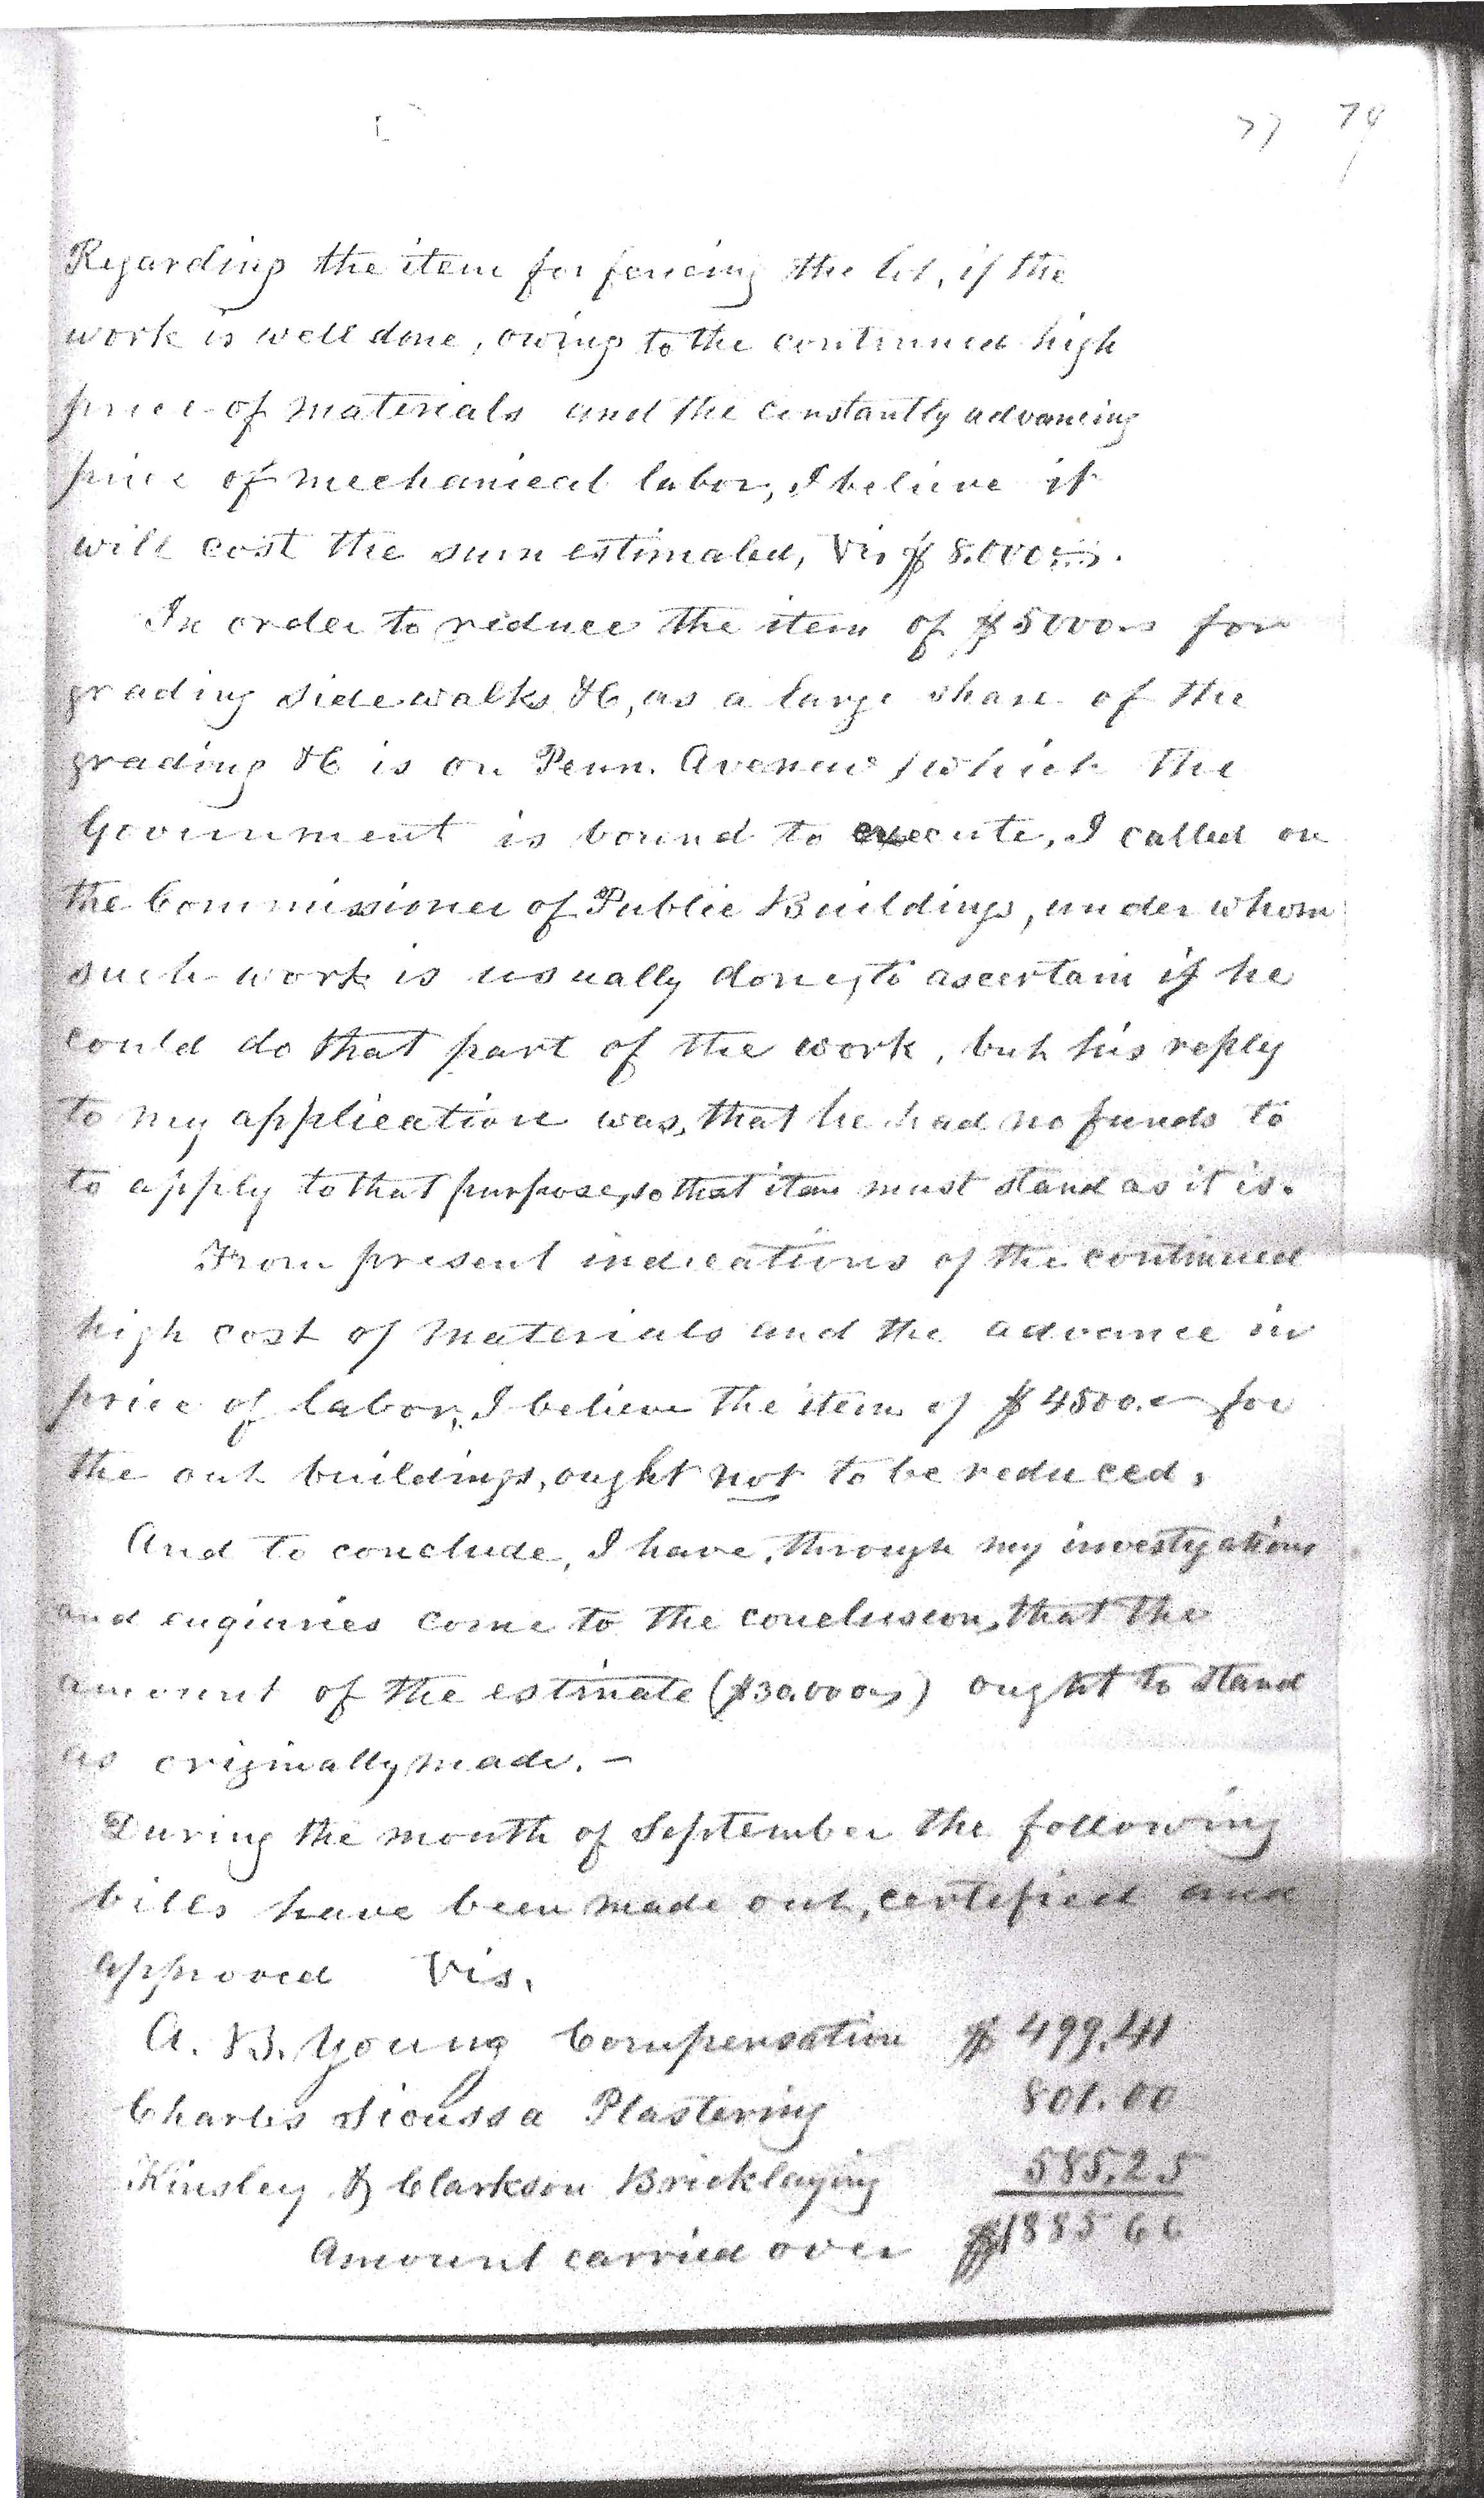 77 74
Regarding the item for fencing the lot, if the
work is well done, owing to the continued high
price of materials and the constantly advancing
price of mechanical labor, I believe it
will cost the sum estimated, Vis $8.000
In order to reduce the item of $5000 for
grading side walks &C, as a large share of the
grading &C is on Penn. Avenew which the
Government is bound to execute, I called on
the Commissioner of Public Buildings, under whom
such work is usually done, to ascertain if he
could do that part of the work, but his reply
to my application was, that he had no funds to
to apply to that purpose, so that item must stand as it is.
From present indications of the continued
high cost of materials and the advance in
price of labor, I believe the item of $4500. for
the out buildings, ought not to be reduced.
And to conclude, I have, through my investigations
and enquiries come to the conclusion, that the
amount of the estimate ($30.000) ought to stand
as originally made. –
During the month of September the following
bills have been made out, certified and
approved Vis.
A. B. Young Compensation $ 499.41
Charles Sioussa Plastering 801.00
Kinsley & Clarkson Bricklaying 585.25
Amount carried over $1885 66